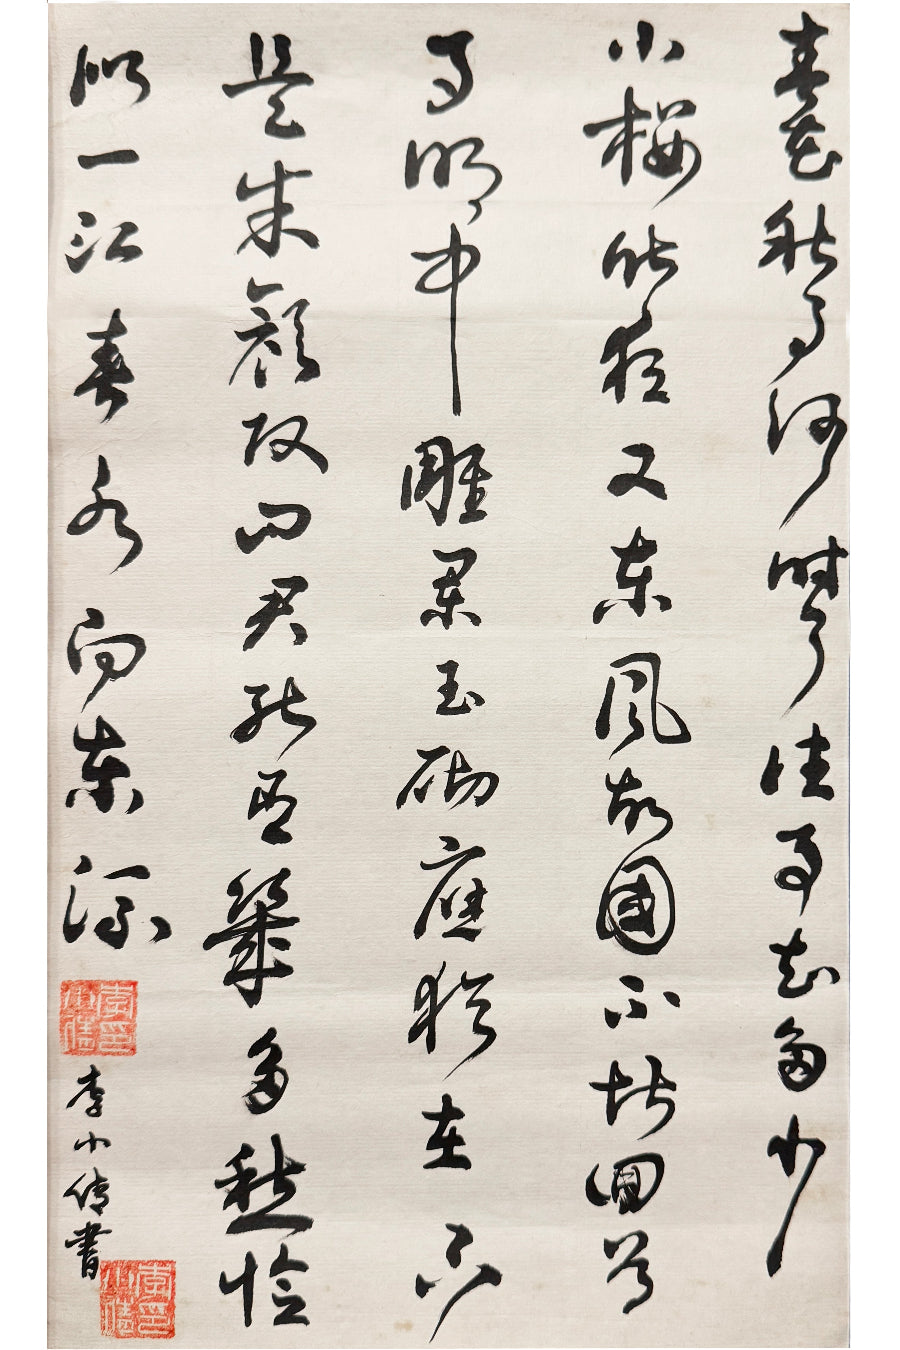 春花秋月何時了往事知多少
小樓昨夜又東風故國不堪回首
月明中雕闌玉砌應猶在只
是朱顏改問君能有幾多愁恰
似一江春水向東流
李小倩書